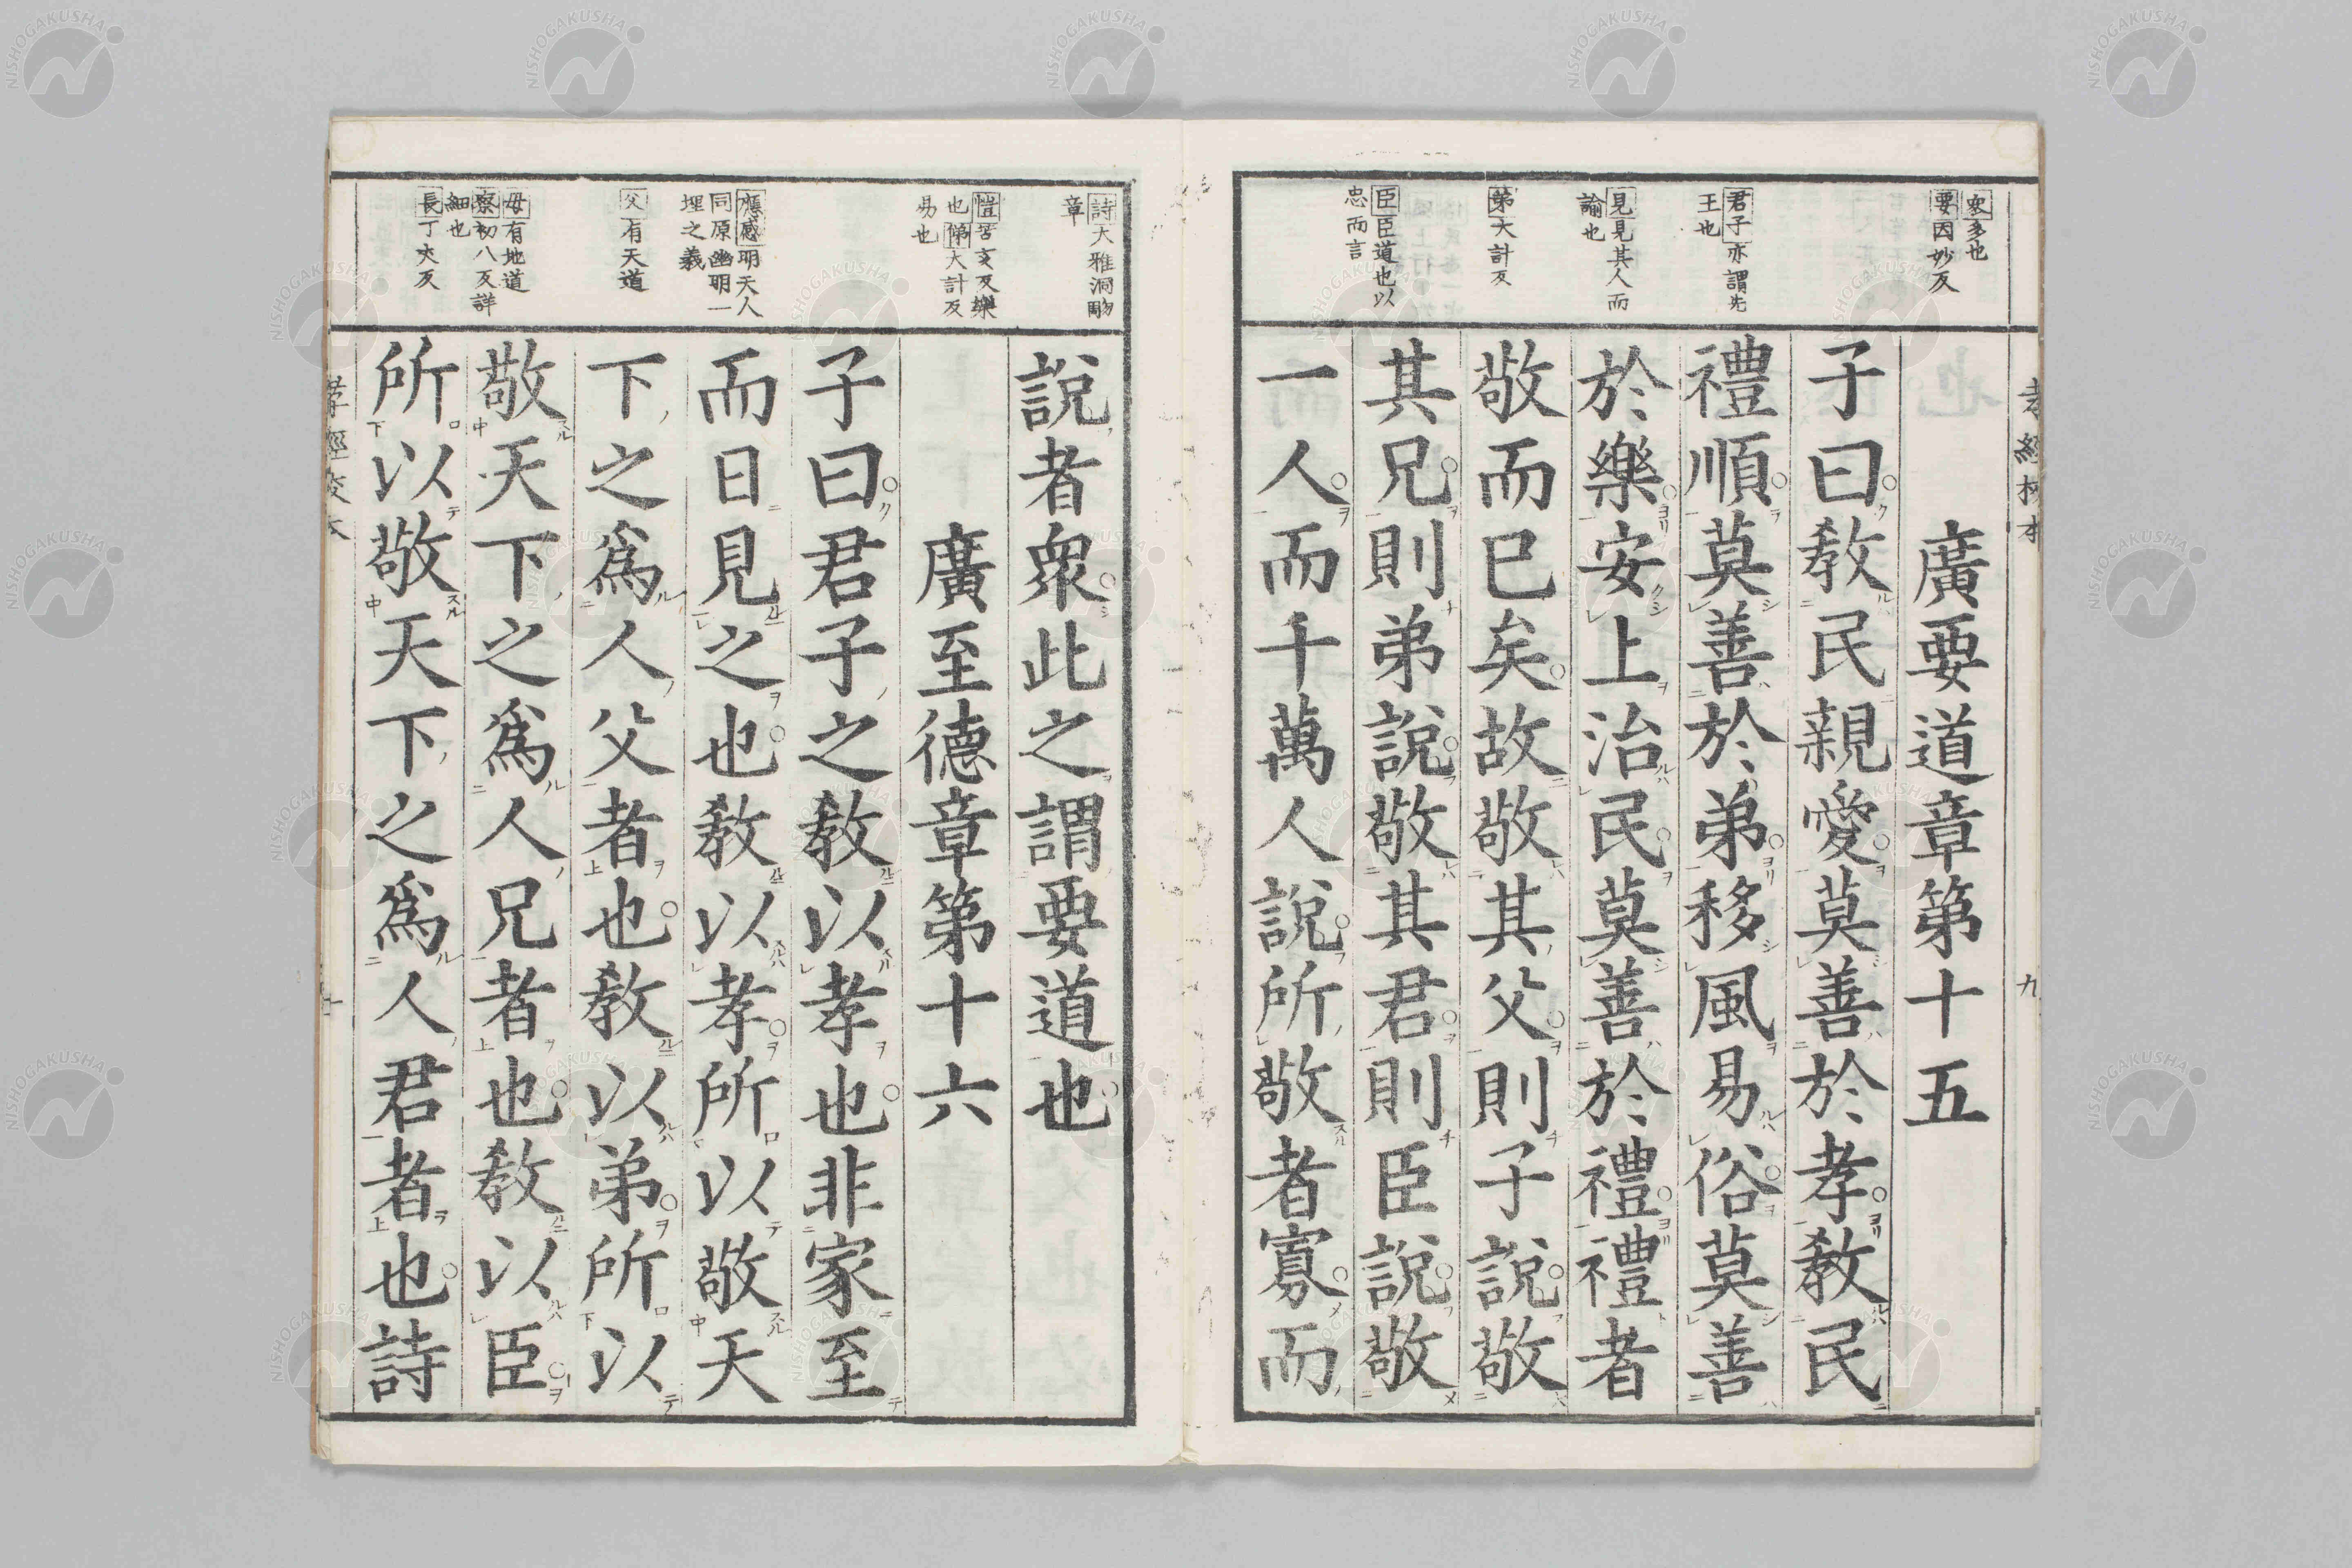 孝經校本
九
衆多也
要因妙反
君子亦謂先
王也
見見其人而
諭也
第大計反
臣臣道也以
忠而言
廣要道章第十五
子曰教民親愛莫善於孝教民
禮順莫善於弟移風易俗莫善
於樂安上治民莫善於禮禮者
敬而已矣故敬其父則子說敬
其兄則弟說敬其君則臣說敬
一人而千萬人說所敬者寡而
詩大雅泂酌
章
愷苦亥反樂
也悌大計反
易也
應感明天人
同原幽明一
理之義
父有天道
母有地道
察初八反詳
細也
長丁丈反
說者衆此之謂要道也
廣至德章第十六
子曰君子之教以孝也非家至
而日見之也教以孝所以敬天
下之爲人父者也教以弟所以
敬天下之爲人兄者也教以臣
所以敬天下之爲人君者也詩
孝經校本
十
NISHOGAKUSHA